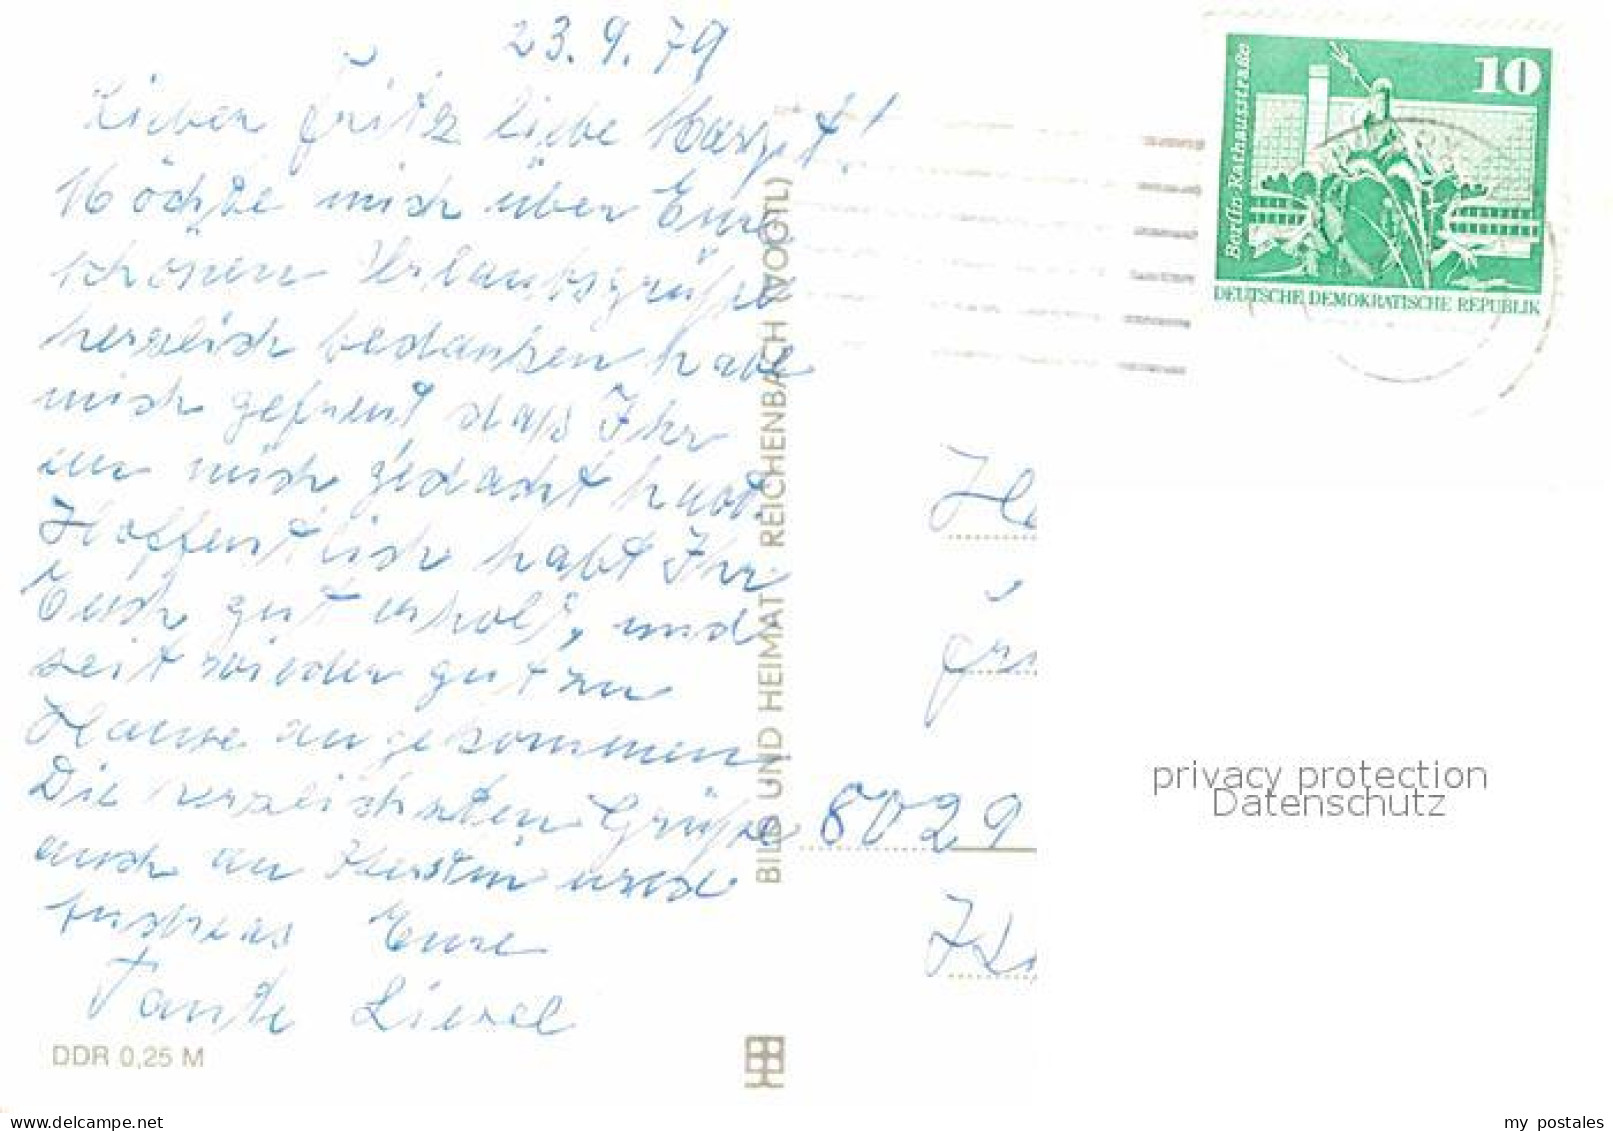 23.9.79
Lieber Fritz liebe Margit!
Möchte mich über Eure
schönen Urlaubsgrüße
herzlich bedanken habe
mich gefreut dass Ihr
an mich gedacht habt.
Hoffentlich habt Ihr
Euch gut erholt, und
seit wieder gut zu
Hause angekommen
Die herzlichsten Grüße
auch an Kerstin und
Andreas Eure
Tante Liesel
DDR 0,25 M
BILD UND HEIMAT REICHENBACH (VOGTL)
10
Berlin, Rathausstraße
DEUTSCHE DEMOKRATISCHE REPUBLIK
8029
privacy protection
Datenschutz
www.delcampe.net
my postales